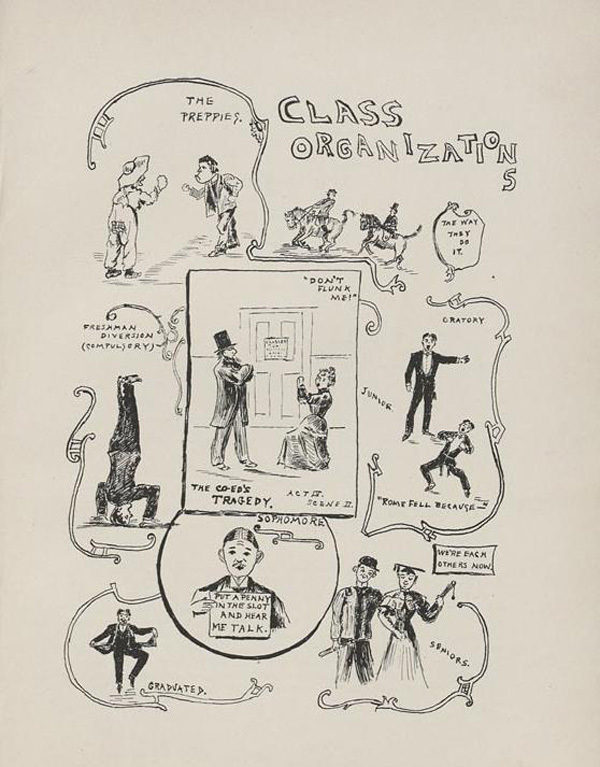 THE
PREPPIES.
CLASS
ORGANIZATION
S
THE WAY
THEY
DO
IT.
"DON'T
FLUNK
ME!"
FRESHMAN
DIVERSION
(COMPULSORY)
ORATORY
JUNIOR.
"ROME FELL BECAUSE—"
THE CO-ED'S
TRAGEDY.
ACT IV.
SCENE II.
SOPHOMORE
PUT A PENNY
IN THE SLOT
AND HEAR
ME TALK.
WE'RE EACH
OTHERS NOW.
SENIORS.
GRADUATED.